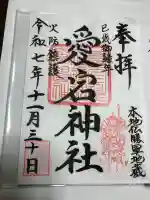 奉拝
巳歳御縁年
愛宕神社
火防
本地仏勝軍地蔵
令和七年十一月三十日